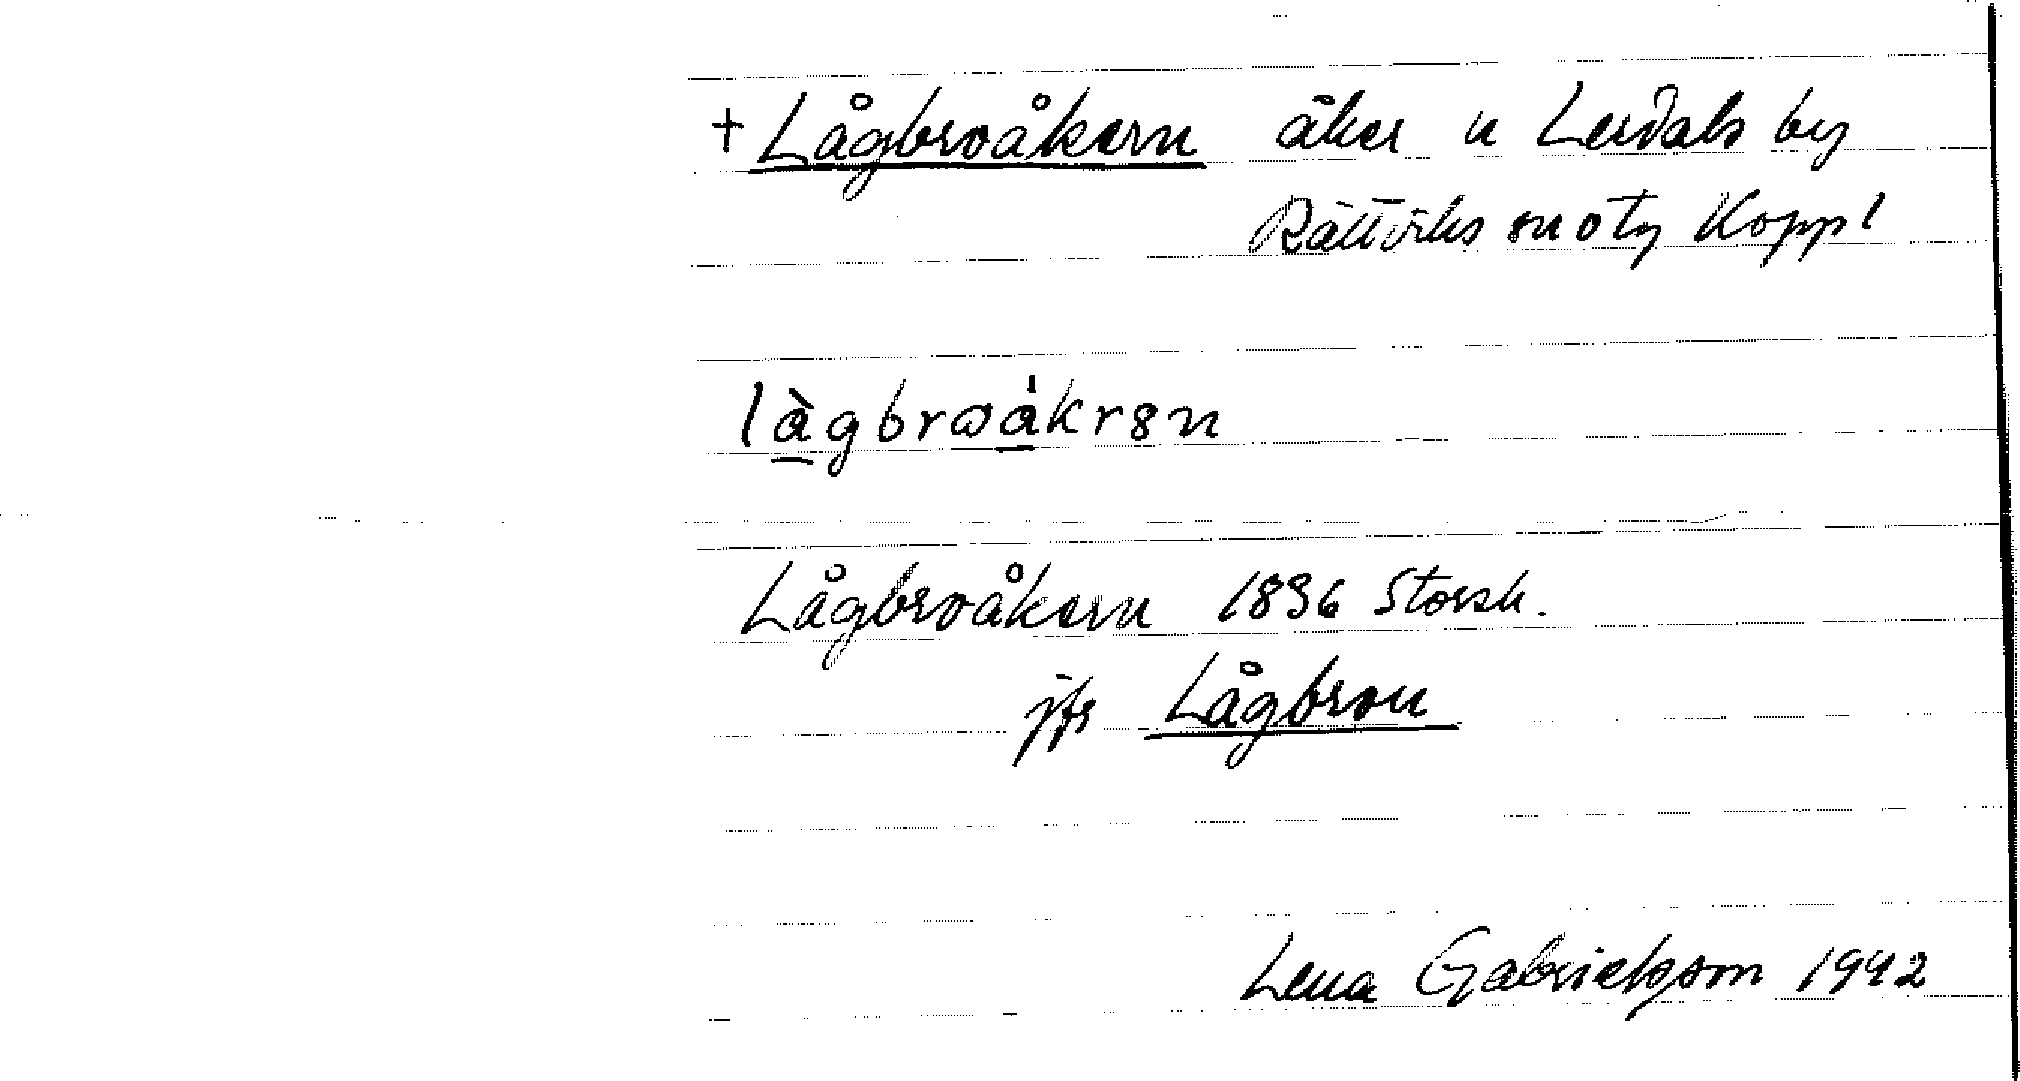 + Lågbroåkern åker u Lerdals by
Rättviks sn o tg Koppl
làgbrωåkrən
Lågbroåkern 1896 Storsk.
jfr Lågbron
Lena Gabrielsson 1942